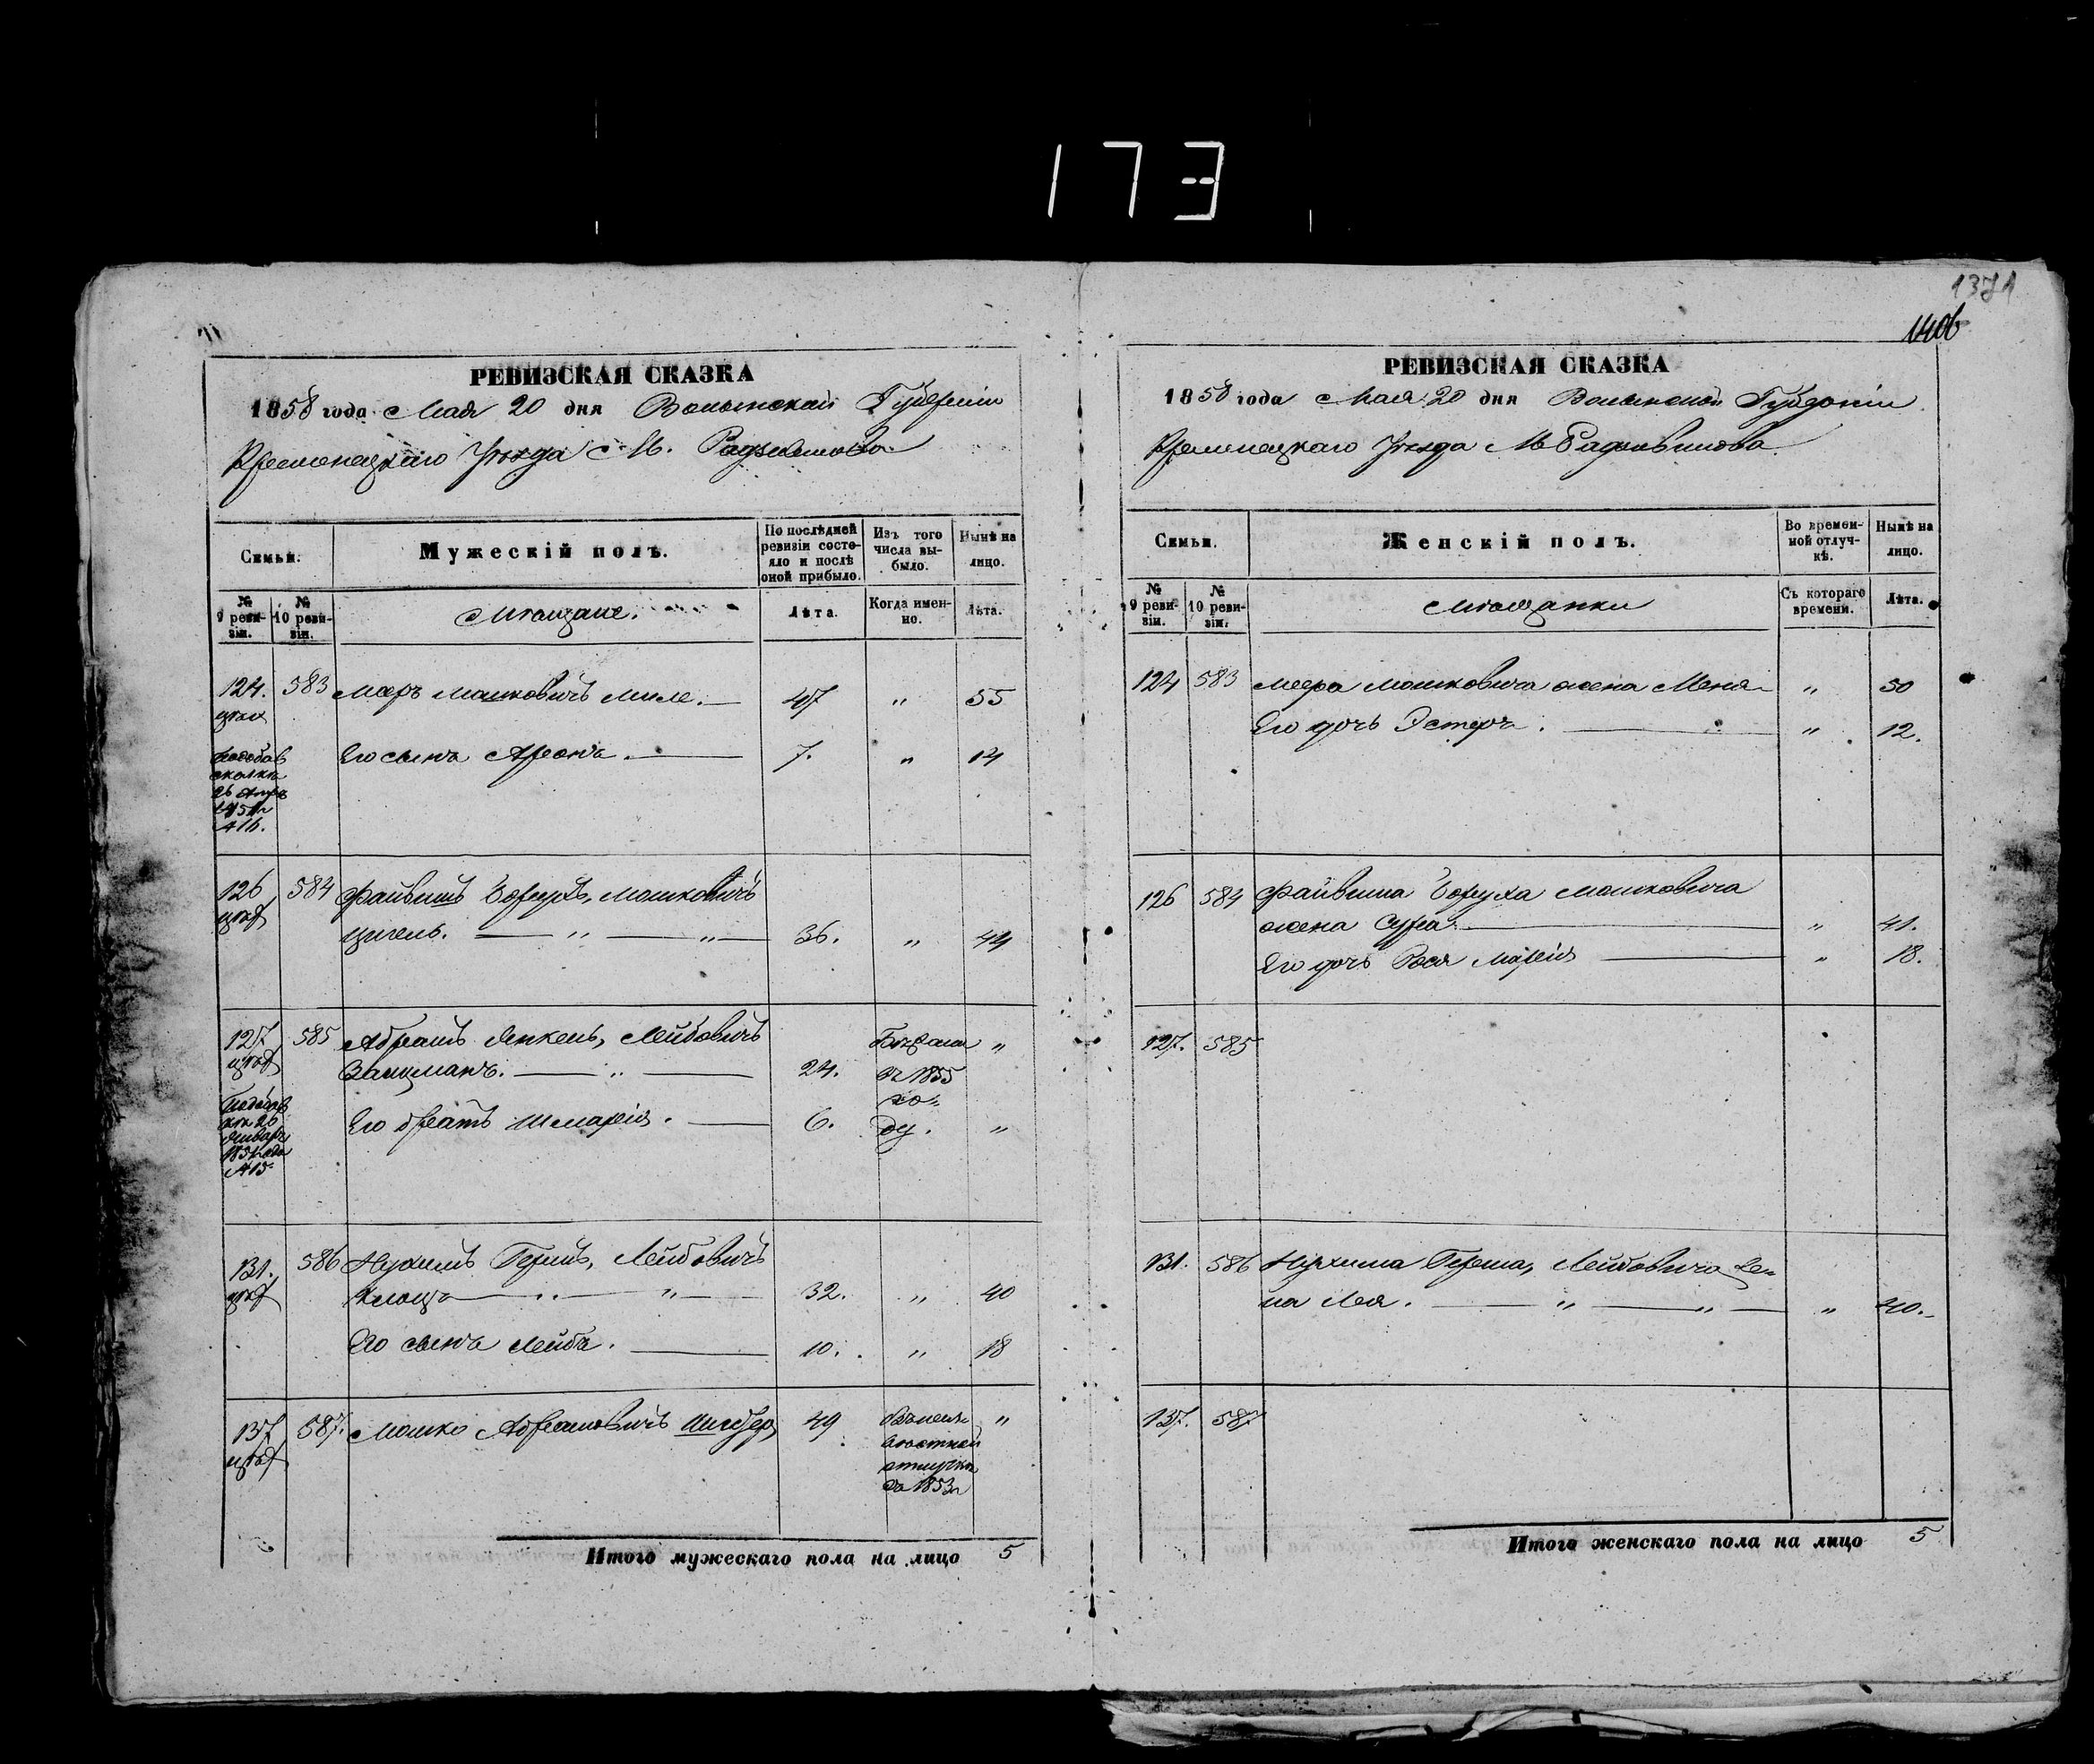 173
1371
1406
РЕВИЗСКАЯ СКАЗКА
1858 года Мая 20 дня Волынской Губерніи
Кременецкаго Уѣзда М. Радзивилова
Семьи.
Мужескій полъ.
По послѣдней ревизіи состояло и послѣ оной прибыло.
Изъ того числа выбыло.
Нынѣ на лицо.
№ 9 ревизіи.
№ 10 ревизіи.
Мѣщане.
Лѣта.
Когда именно.
Лѣта.
124. 583 Меръ Мошковичъ Миле. 47 " 55
Его сынъ Аронъ. 7. " 14
126 584 Файвишъ Борухъ, Мошковичъ
Цигель. " " 36. " 44
127 585 Абрамъ Янкель, Лейбовичъ
Зальцманъ. " 24. Бѣжали въ 1855 го- "
Его братъ Шмарія. 6. ду. "
131. 586 Нухимъ Гершъ, Лейбовичъ
Клоцъ " " 32. " 40
Его сынъ Лейба. 10. " 18
137 587. Мошко Абрамовичъ 49 "
отлучкѣ
1853
Итого мужескаго пола на лицо 5
РЕВИЗСКАЯ СКАЗКА
1858 года Мая 20 дня Волынской Губерніи
Кременецкаго Уѣзда М Радзивилова
Семьи.
Женскій полъ.
Во временной отлучкѣ.
Нынѣ на лицо.
№ 9 ревизіи.
№ 10 ревизіи.
Мѣщанки
Съ котораго времени.
Лѣта.
124 583 Меера Мошковича жена Меня " 50
Его дочь Эстеръ. " 12.
126 584 Файвиша Боруха Мошковича
жена Сура " 41.
Его дочь Рося Марія " 18.
127. 585
131. 586 Нухима Герша, Лейбовича же-
на Лея. " " " 40.
137. 587
Итого женскаго пола на лицо 5